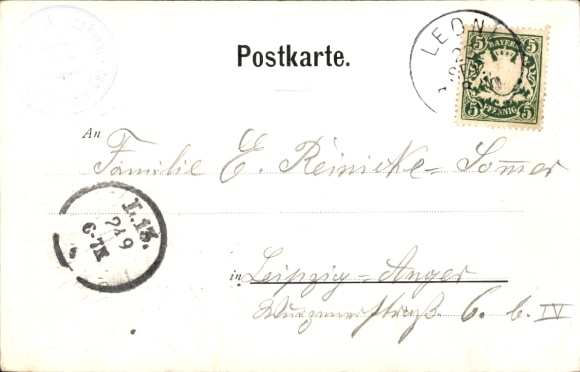 Postkarte.
LEONI
5 BAYERN 5
5 PFENNIG 5
An
Familie E. Reinicke-Sommer
L.13.
21 9
6-7N
in Leipzig-Anger
Wurznerstraß. 6. b. IV